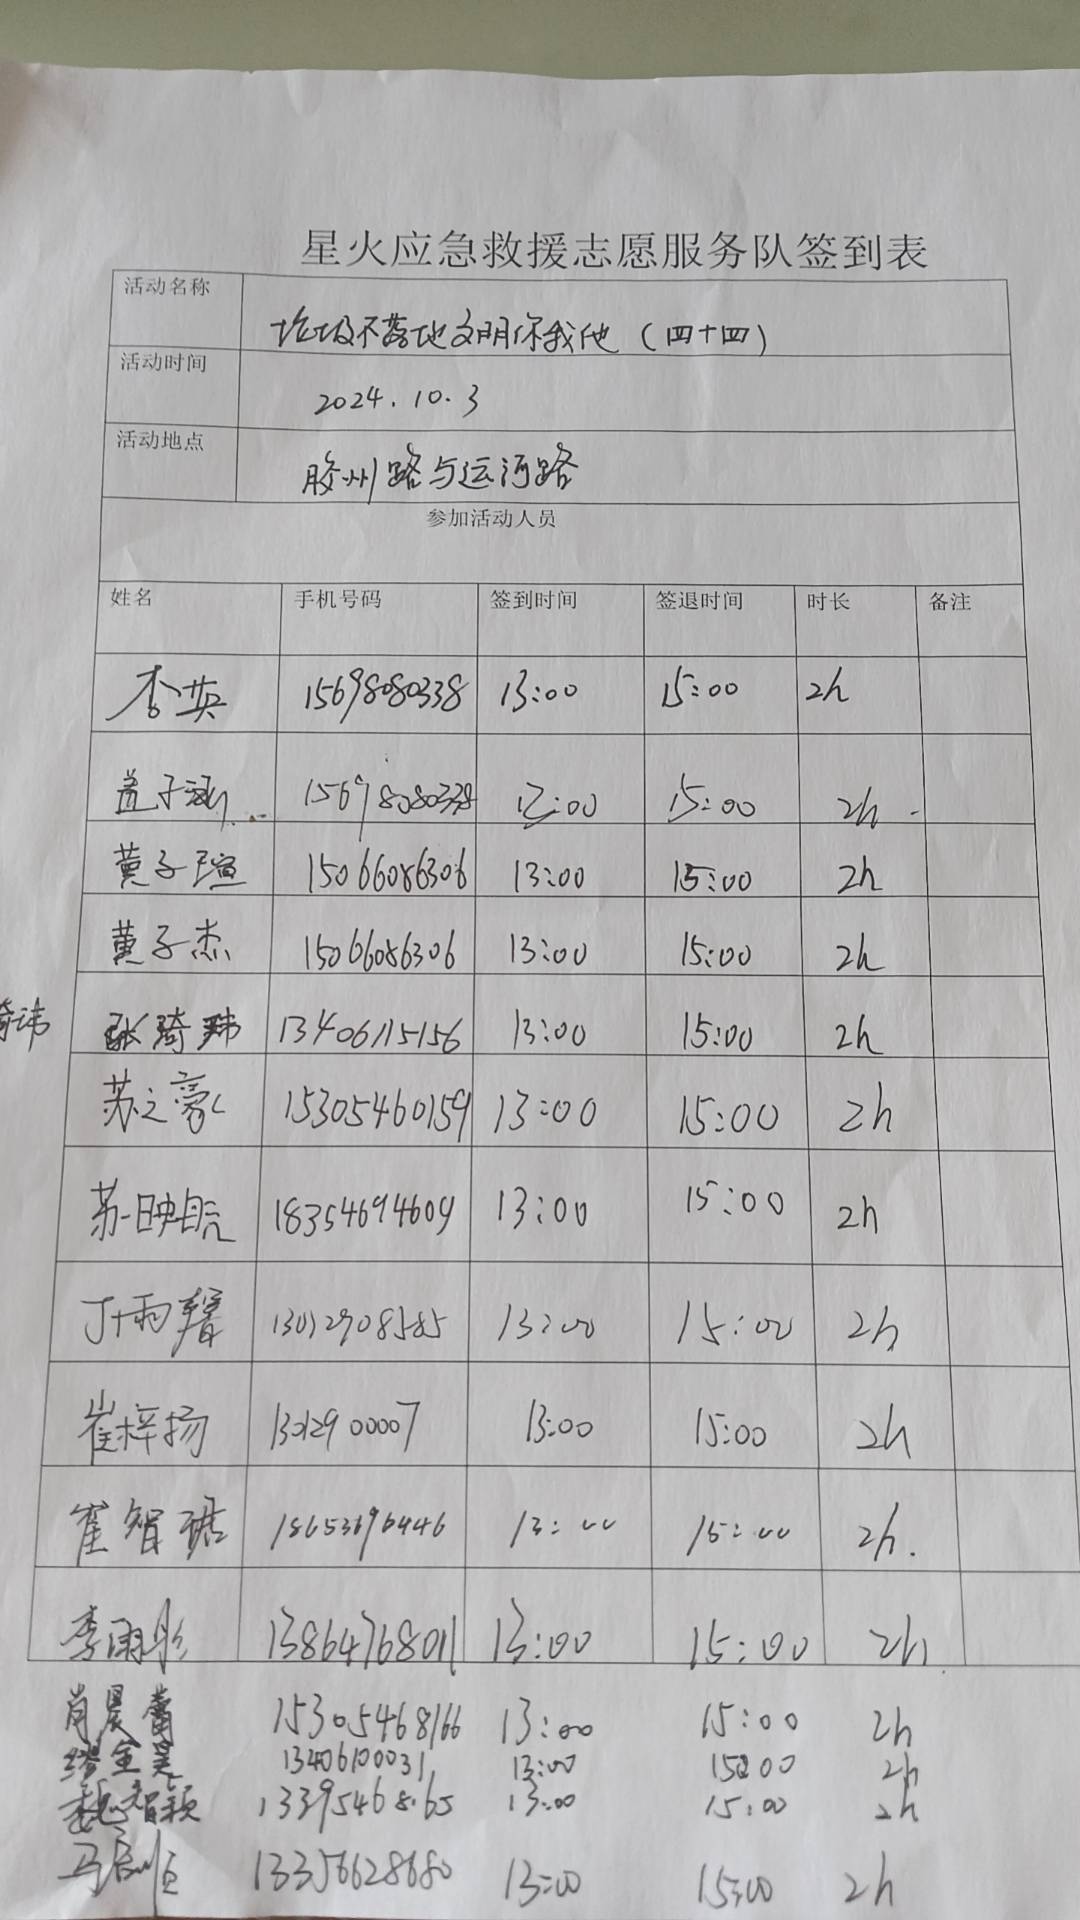 星火应急救援志愿服务队签到表
活动名称 垃圾不落地文明你我他（四十四）
活动时间 2024.10.3
活动地点 胶州路与运河路
参加活动人员
姓名 手机号码 签到时间 签退时间 时长 备注
李英 15698080338 13:00 15:00 2h
盖子涵 15698080338 13:00 15:00 2h
黄子瑄 15066086306 13:00 15:00 2h
黄子杰 15066086306 13:00 15:00 2h
琦玮 张琦玮 13406115156 13:00 15:00 2h
苏之豪 15305460159 13:00 15:00 2h
苏映航 18354694609 13:00 15:00 2h
丁雨馨 13012908585 13:00 15:00 2h
崔梓扬 13012900007 13:00 15:00 2h
崔智琚 18653696446 13:00 15:00 2h.
李雨彤 13864768011 13:00 15:00 2h
肖晨蕾 15305468166 13:00 15:00 2h
缪金昊 13406100031 13:00 15:00 2h
魏智颖 13395468165 13:00 15:00 2h
马 13356628680 13:00 15:00 2h